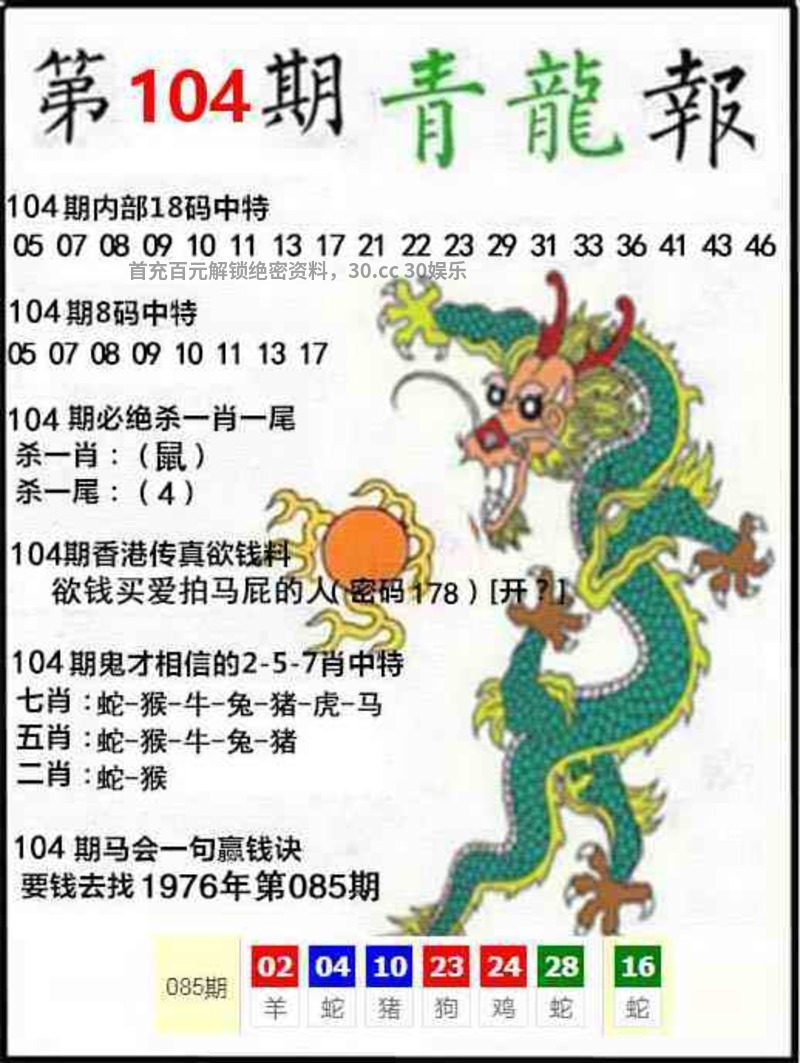 第104期青龍報
104期内部18码中特
05 07 08 09 10 11 13 17 21 22 23 29 31 33 36 41 43 46
首充百元解锁绝密资料，30.cc 30娱乐
104期8码中特
05 07 08 09 10 11 13 17
104 期必绝杀一肖一尾
杀一肖：（鼠）
杀一尾：（4）
104期香港传真欲钱料
欲钱买爱拍马屁的人（密码178）[开？]
104期鬼才相信的2-5-7肖中特
七肖：蛇-猴-牛-兔-猪-虎-马
五肖：蛇-猴-牛-兔-猪
二肖：蛇-猴
104 期马会一句赢钱诀
要钱去找1976年第085期
085期 02 04 10 23 24 28 16
羊 蛇 猪 狗 鸡 蛇 蛇